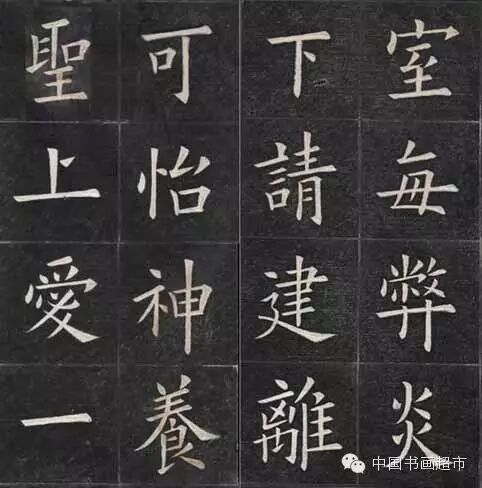 室每弊炎
下請建離
可怡神養
聖上愛一
中国书画超市